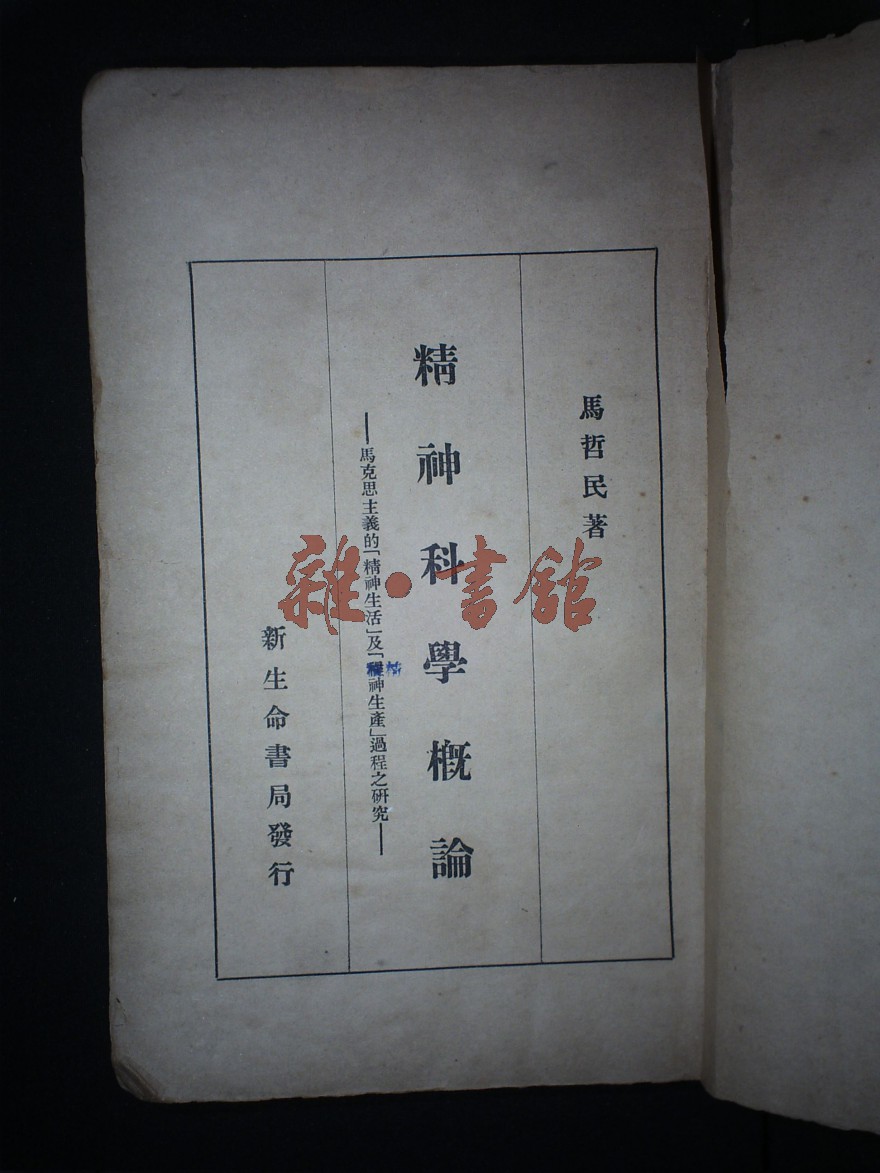 馬哲民著
精神科學概論
——馬克思主義的「精神生活」及「精神生產」過程之研究——
新生命書局發行
雜·書館